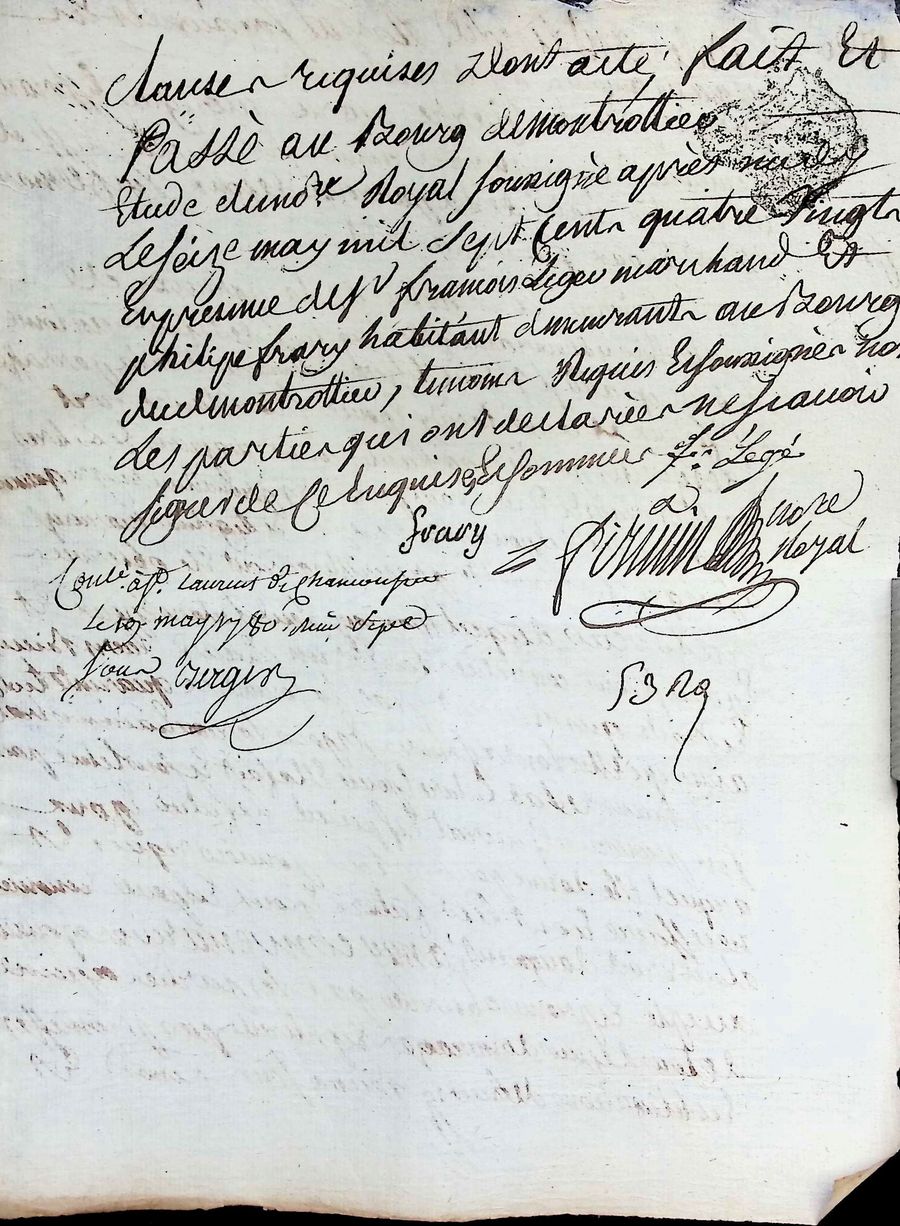 clauses requises dont acte, fait Et
Passé au Bourg de montrottier
Etude du no.re Royal soussigné après midy
Le seize may mil sept Cent quatre Vingt
En presence de sr françois Leger marchand Et
philipe frary habitant demeurants au Bourg
dud montrottier, temoins Requis Et soussignés non
Les parties qui ont declarées ne scavoir
signer de Ce Enquises Et sommées fs Legé
frary
nore
Royal
Conlé. à st. Laurent de Chamousset
Le may 1780
sous